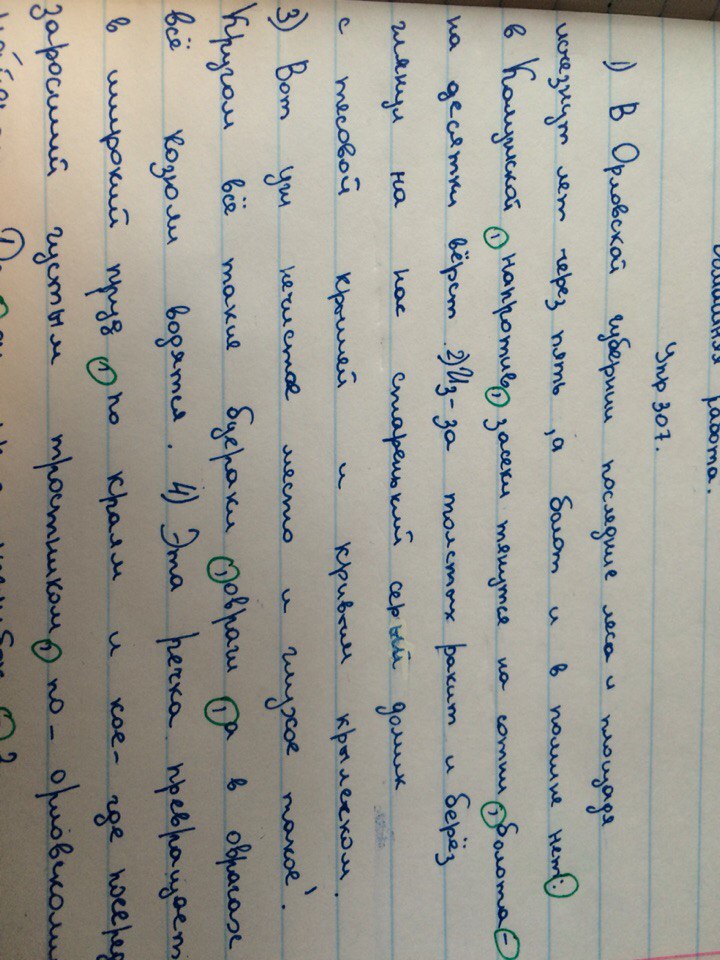 работа.
Упр 307.
1) В Орловской губернии последние леса и площадя
исчезнут лет через пять ,а болот и в помине нет:
в Калужской, напротив, засеки тянутся на сотни, болота-
на десятки вёрст. 2) Из-за толстых ракит и берёз
глянул на нас старенький серый домик
с тесовой крышей и кривым крылечком.
3) Вот уж нечистое место и глухое такое!
Кругом всё такие буераки, овраги, а в оврагах
всё казюли водятся. 4) Эта речка превращает
в широкий пруд, по краям и кое-где посеред
заросший густым тростником, по-орловскому